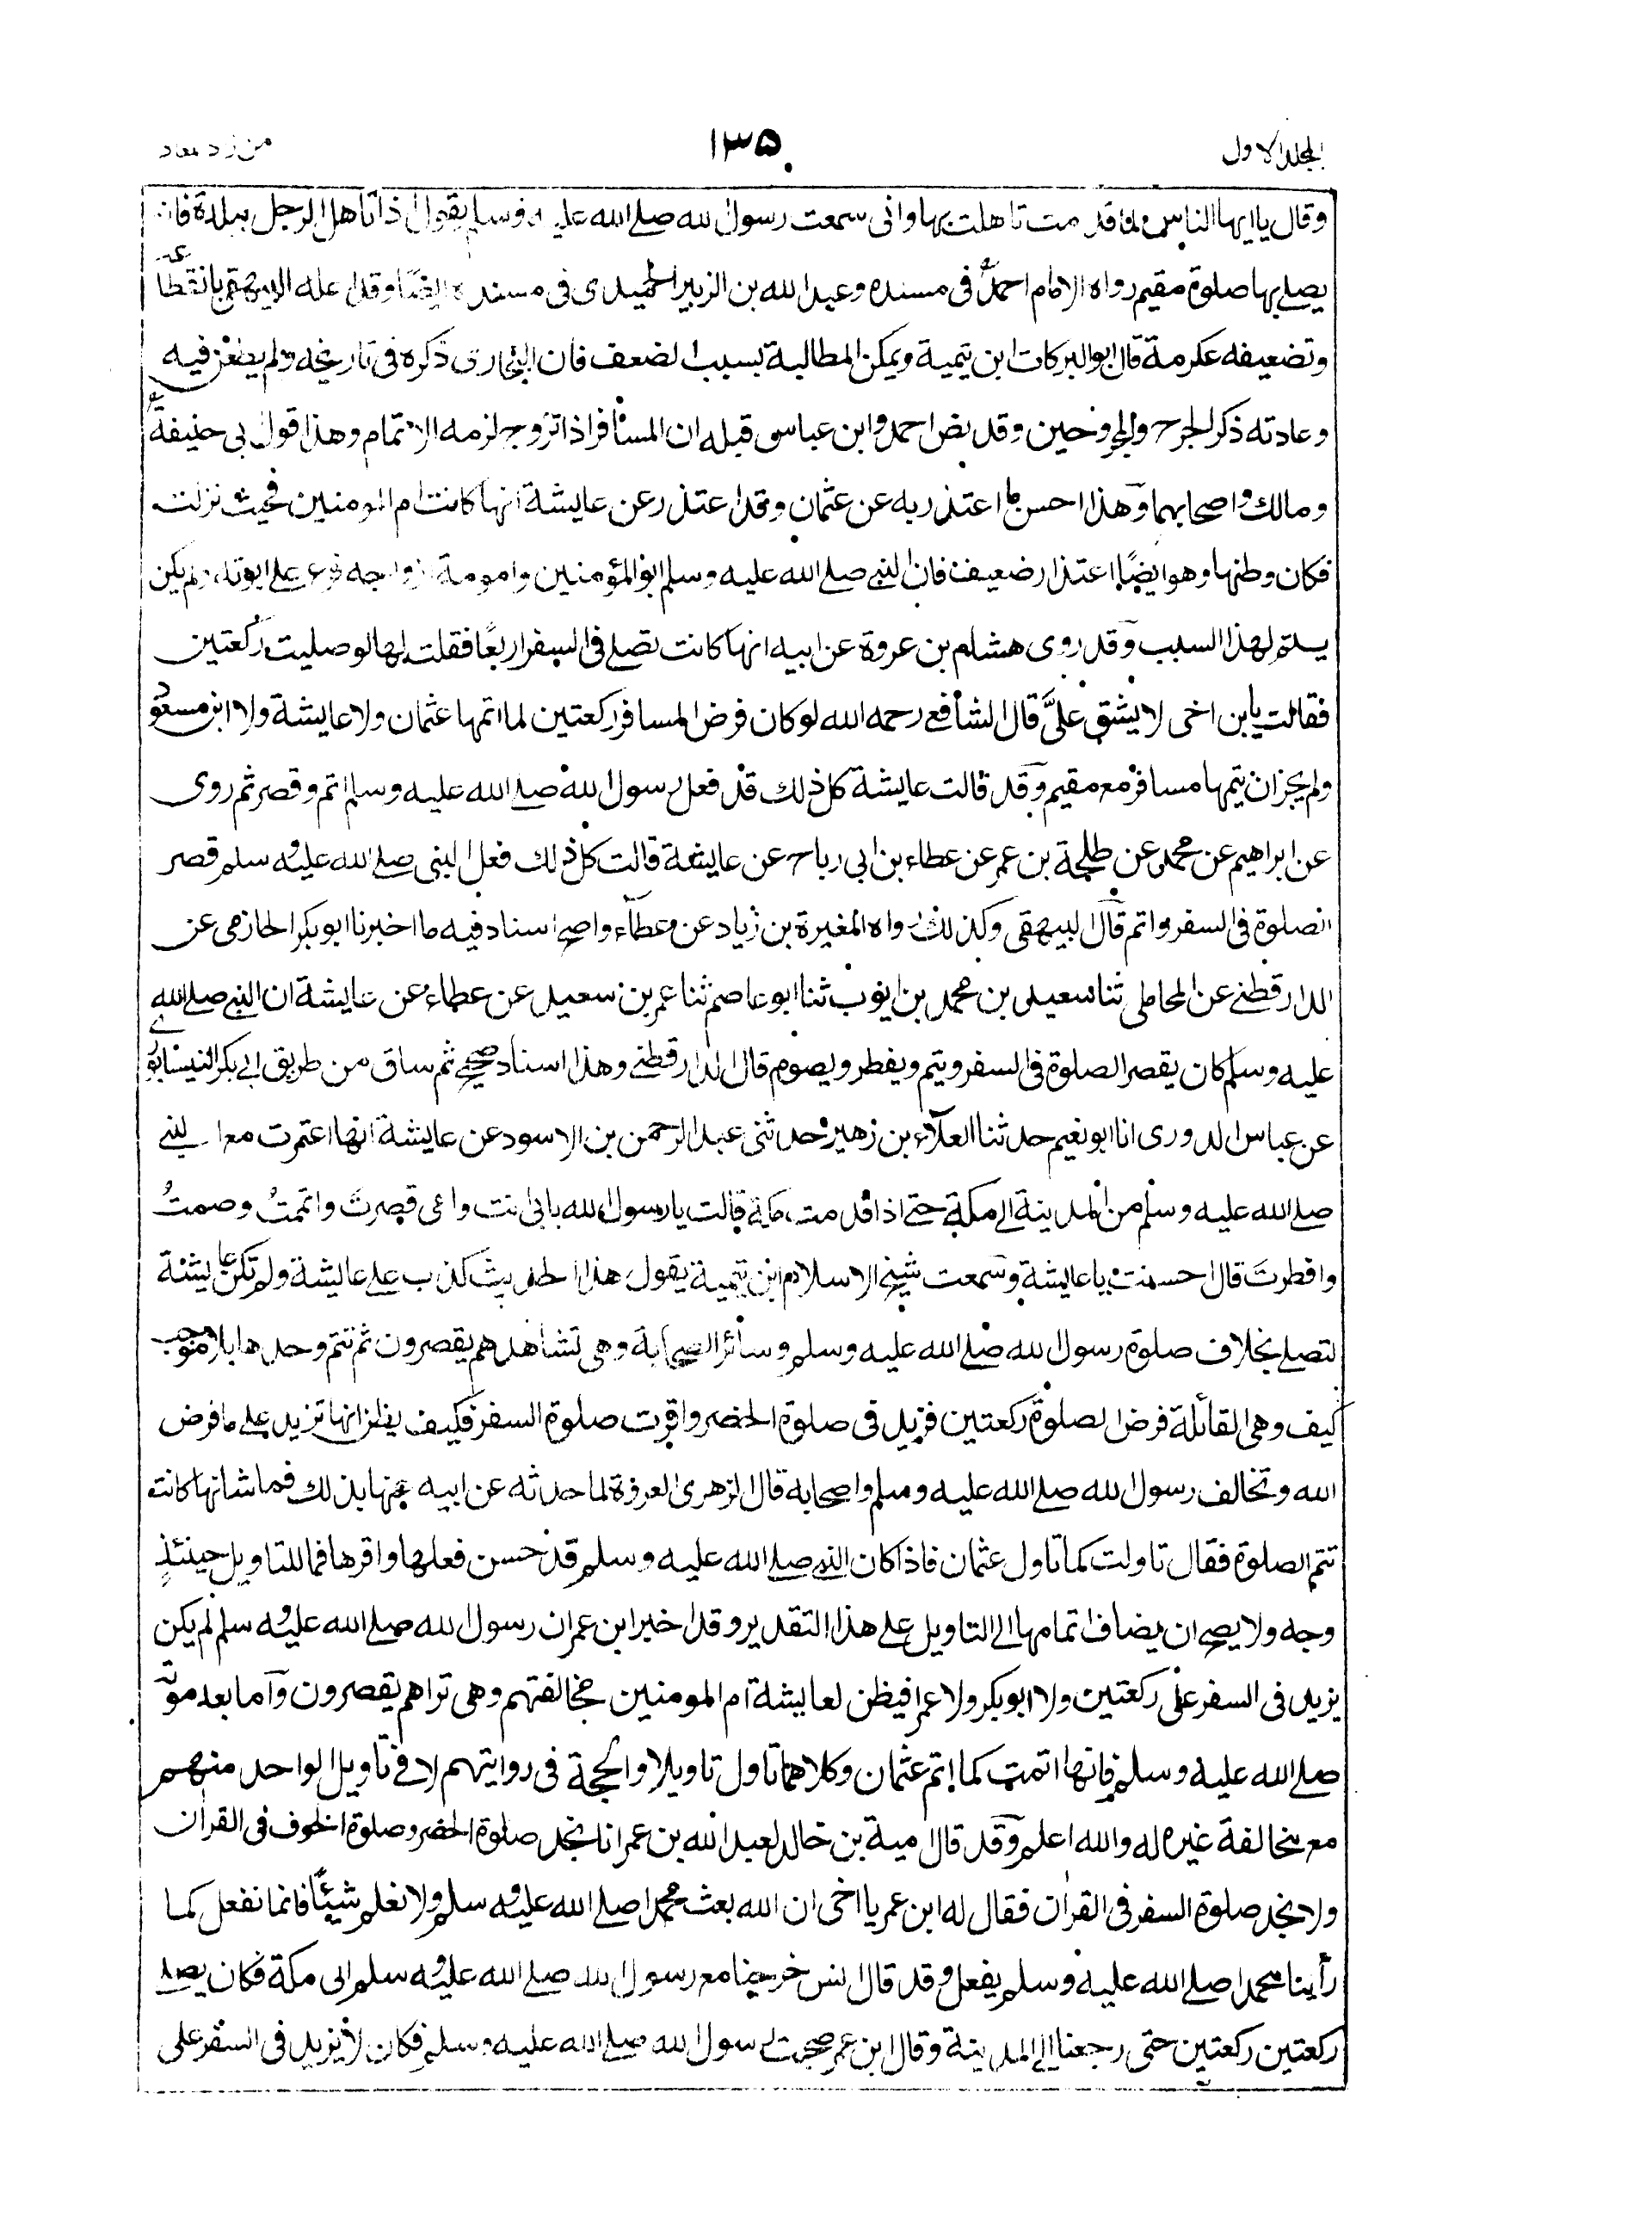 المجلد الاول
۱۳۵
من زاد معاد
وقال يا ايها الناس لما قدمت تاهلت بها وانى سمعت رسول الله صلے الله عليه وسلم يقول اذا تاهل الرجل ببلدة فانه
يصلے بها صلوة مقيم رواه الامام احمدؒ فى مسنده وعبد الله بن الزبير الحميدى فى مسنده ايضًا وقد اعله البيهقى بانقطاعه
وتضعيفه عكرمة قال ابو البركات ابن تيمية ويمكن المطالبة بسبب الضعف فان البخارى ذكره فى تاريخه ولم يطعن فيه
وعادته ذكر الجرح والمجروحين وقد نص احمد وابن عباس قبله ان المسافر اذا تزوج لزمه الاتمام وهذا قول ابى حنيفةؒ
ومالك واصحابهما وهذا احسن ما اعتذر به عن عثمان وقد اعتذر عن عايشة انها كانت ام المومنين فحيث نزلت
فكان وطنها وهو ايضًا اعتذار ضعيف فان النبے صلے الله عليه وسلم ابو المؤمنين وامومة ازواجه فرع علے ابوته ولم يكن
يتم لهذا السبب وقد روى هشام بن عروة عن ابيه انها كانت تصلے فى السفر اربعًا فقلت لها لو صليت ركعتين
فقالت يا بن اخى لا يشق علىَّ قال الشافعے رحمه الله لو كان فرض المسافر ركعتين لما اتمها عثمان ولا عايشة ولا ابن مسعود
ولم يجز ان يتمها مسافر مع مقيم وقد قالت عايشة كل ذلك قد فعل رسول الله صلے الله عليه وسلم اتم وقصر ثم روى
عن ابراهيم عن محمد عن طلحة بن عمر عن عطاء بن ابى رباح عن عايشة قالت كل ذلك فعل النبى صلے الله عليه وسلم قصر
الصلوة فى السفر واتم قال البيهقى وكذلك رواه المغيرة بن زياد عن عطاء واصح اسناد فيه ما اخبرنا ابو بكر الحازمى عن
الدارقطنے عن المحاملى ثنا سعيد بن محمد بن ايوب ثنا ابو عاصم ثنا عمر بن سعيد عن عطاء عن عايشة ان النبے صلے الله
عليه وسلم كان يقصر الصلوة فى السفر ويتم ويفطر ويصوم قال الدارقطنے وهذا اسناد صحيح ثم ساق من طريق ابى بكر النيسابورى
عن عباس الدورى انا ابو نعيم حدثنا العلآء بن زهير حدثنى عبد الرحمن بن الاسود عن عايشة انها اعتمرت مع النبے
صلے الله عليه وسلم من المدينة الے مكة حتے اذا قدمت مكة قالت يا رسول الله بابى انت وامى قصرتَ واتممتُ وصمتُ
وافطرتَ قال احسنت يا عايشة وسمعت شيخ الاسلام ابن تيمية يقول هذا الحديث كذب علے عايشة ولم تكن عايشة
لتصلے بخلاف صلوة رسول الله صلے الله عليه وسلم وسائر الصحابة وهى تشاهدهم يقصرون ثم تتم وحدها بلا موجب
كيف وهى القائلة فرض الصلوة ركعتين فزيد فى صلوة الحضر واقرت صلوة السفر فكيف يظن انها تزيد علے ما فرض
الله وتخالف رسول الله صلے الله عليه وسلم واصحابه قال الزهرى لعروة لما حدثه عن ابيه عنها بذلك فما شانها كانت
تتم الصلوة فقال تاولت كما تاول عثمان فاذا كان النبے صلے الله عليه وسلم قد حسن فعلها واقرها فما للتاويل حينئذٍ
وجه ولا يصح ان يضاف اتمامها الے التاويل علے هذا التقدير وقد اخبر ابن عمر ان رسول الله صلے الله عليه وسلم لم يكن
يزيد فى السفر على ركعتين ولا ابو بكر ولا عمر افيظن لعايشة ام المومنين مخالفتهم وهى تراهم يقصرون وآما بعد موته
صلے الله عليه وسلم فانها اتمت كما اتم عثمان وكلاهما تاول تاويلا والحجة فى روايتهم لا فے تاويل الواحد منهم
مع مخالفة غيره له والله اعلم وقد قال امية بن خالد لعبد الله بن عمر انا نجد صلوة الحضر وصلوة الخوف فى القراٰن
ولا نجد صلوة السفر فى القراٰن فقال له ابن عمر يا اخى ان الله بعث محمدا صلے الله عليه وسلم ولا نعلم شيئًا فانما نفعل كما
رأينا محمدا صلے الله عليه وسلم يفعل وقد قال انس خرجنا مع رسول الله صلے الله عليه وسلم الى مكة فكان يصلے
ركعتين ركعتين حتى رجعنا الے المدينة وقال ابن عمر صحبت رسول الله صلے الله عليه وسلم فكان لا يزيد فى السفر على